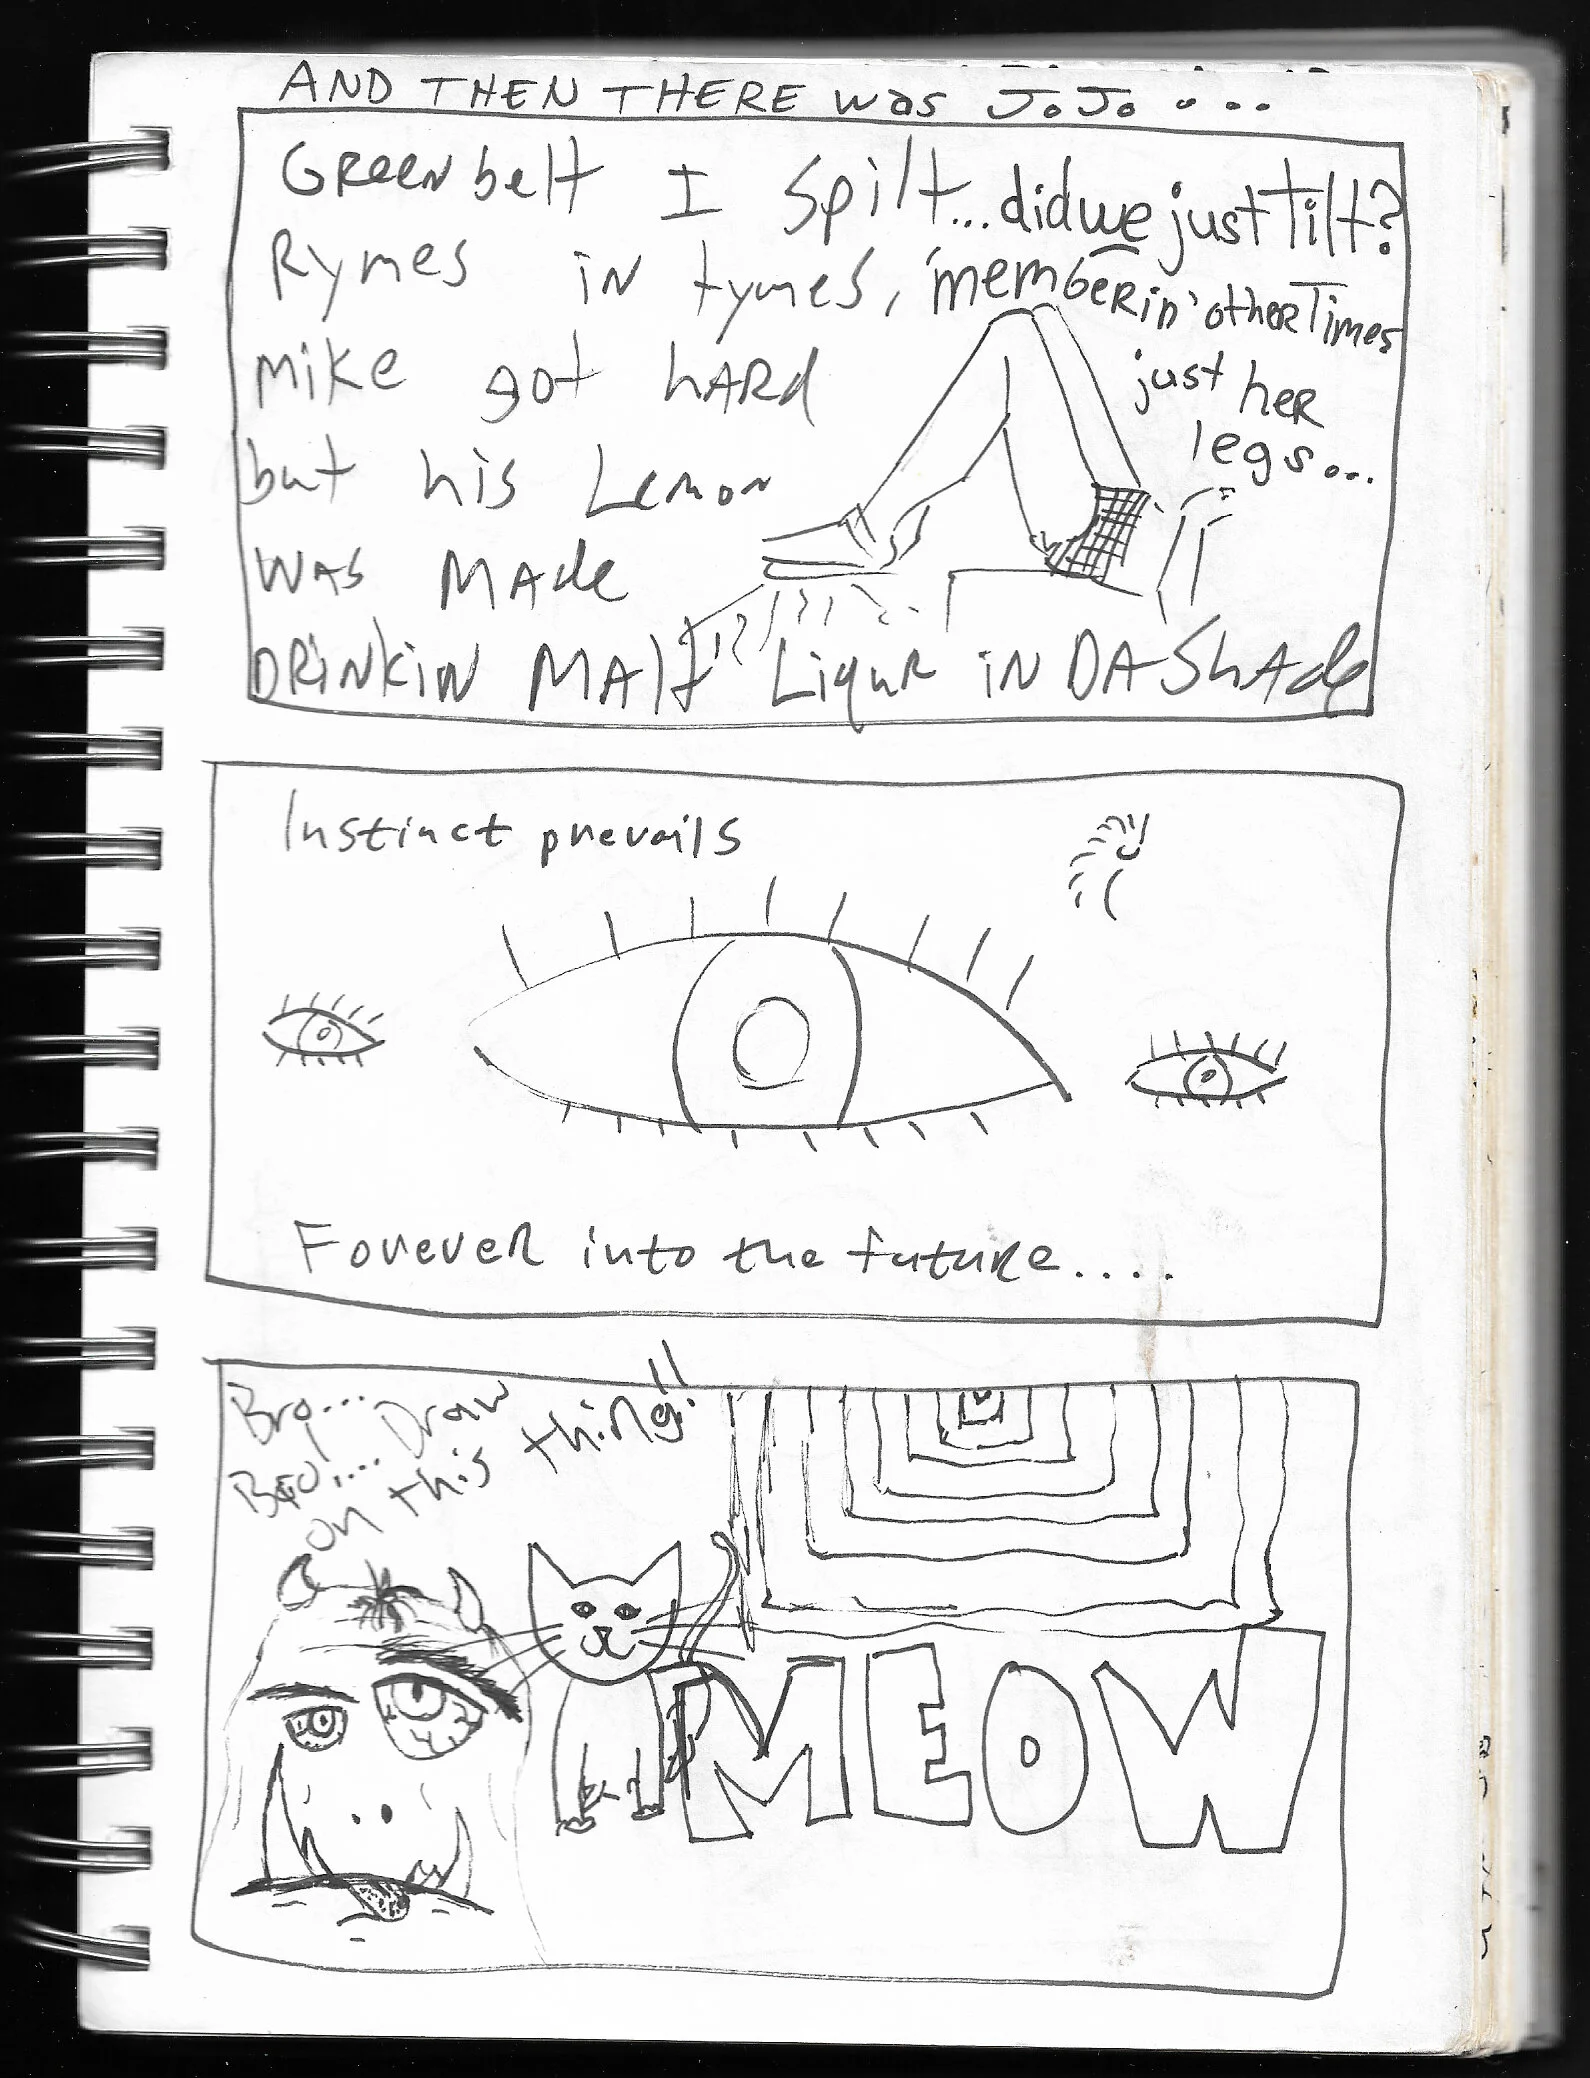 AND THEN THERE was JoJo ...
GReeN belt I Spilt... did we just Tilt?
Rymes iN tymes, 'memberin' otheR Times
mike got hARd
just heR
legs...
but his Lemon
WAS MAde
DRiNKiN MAlt Liqur iN DA ShAde
Instinct prevails
Forever into the future....
Bro...
Bro.... Draw
on this thing!!
MEOW